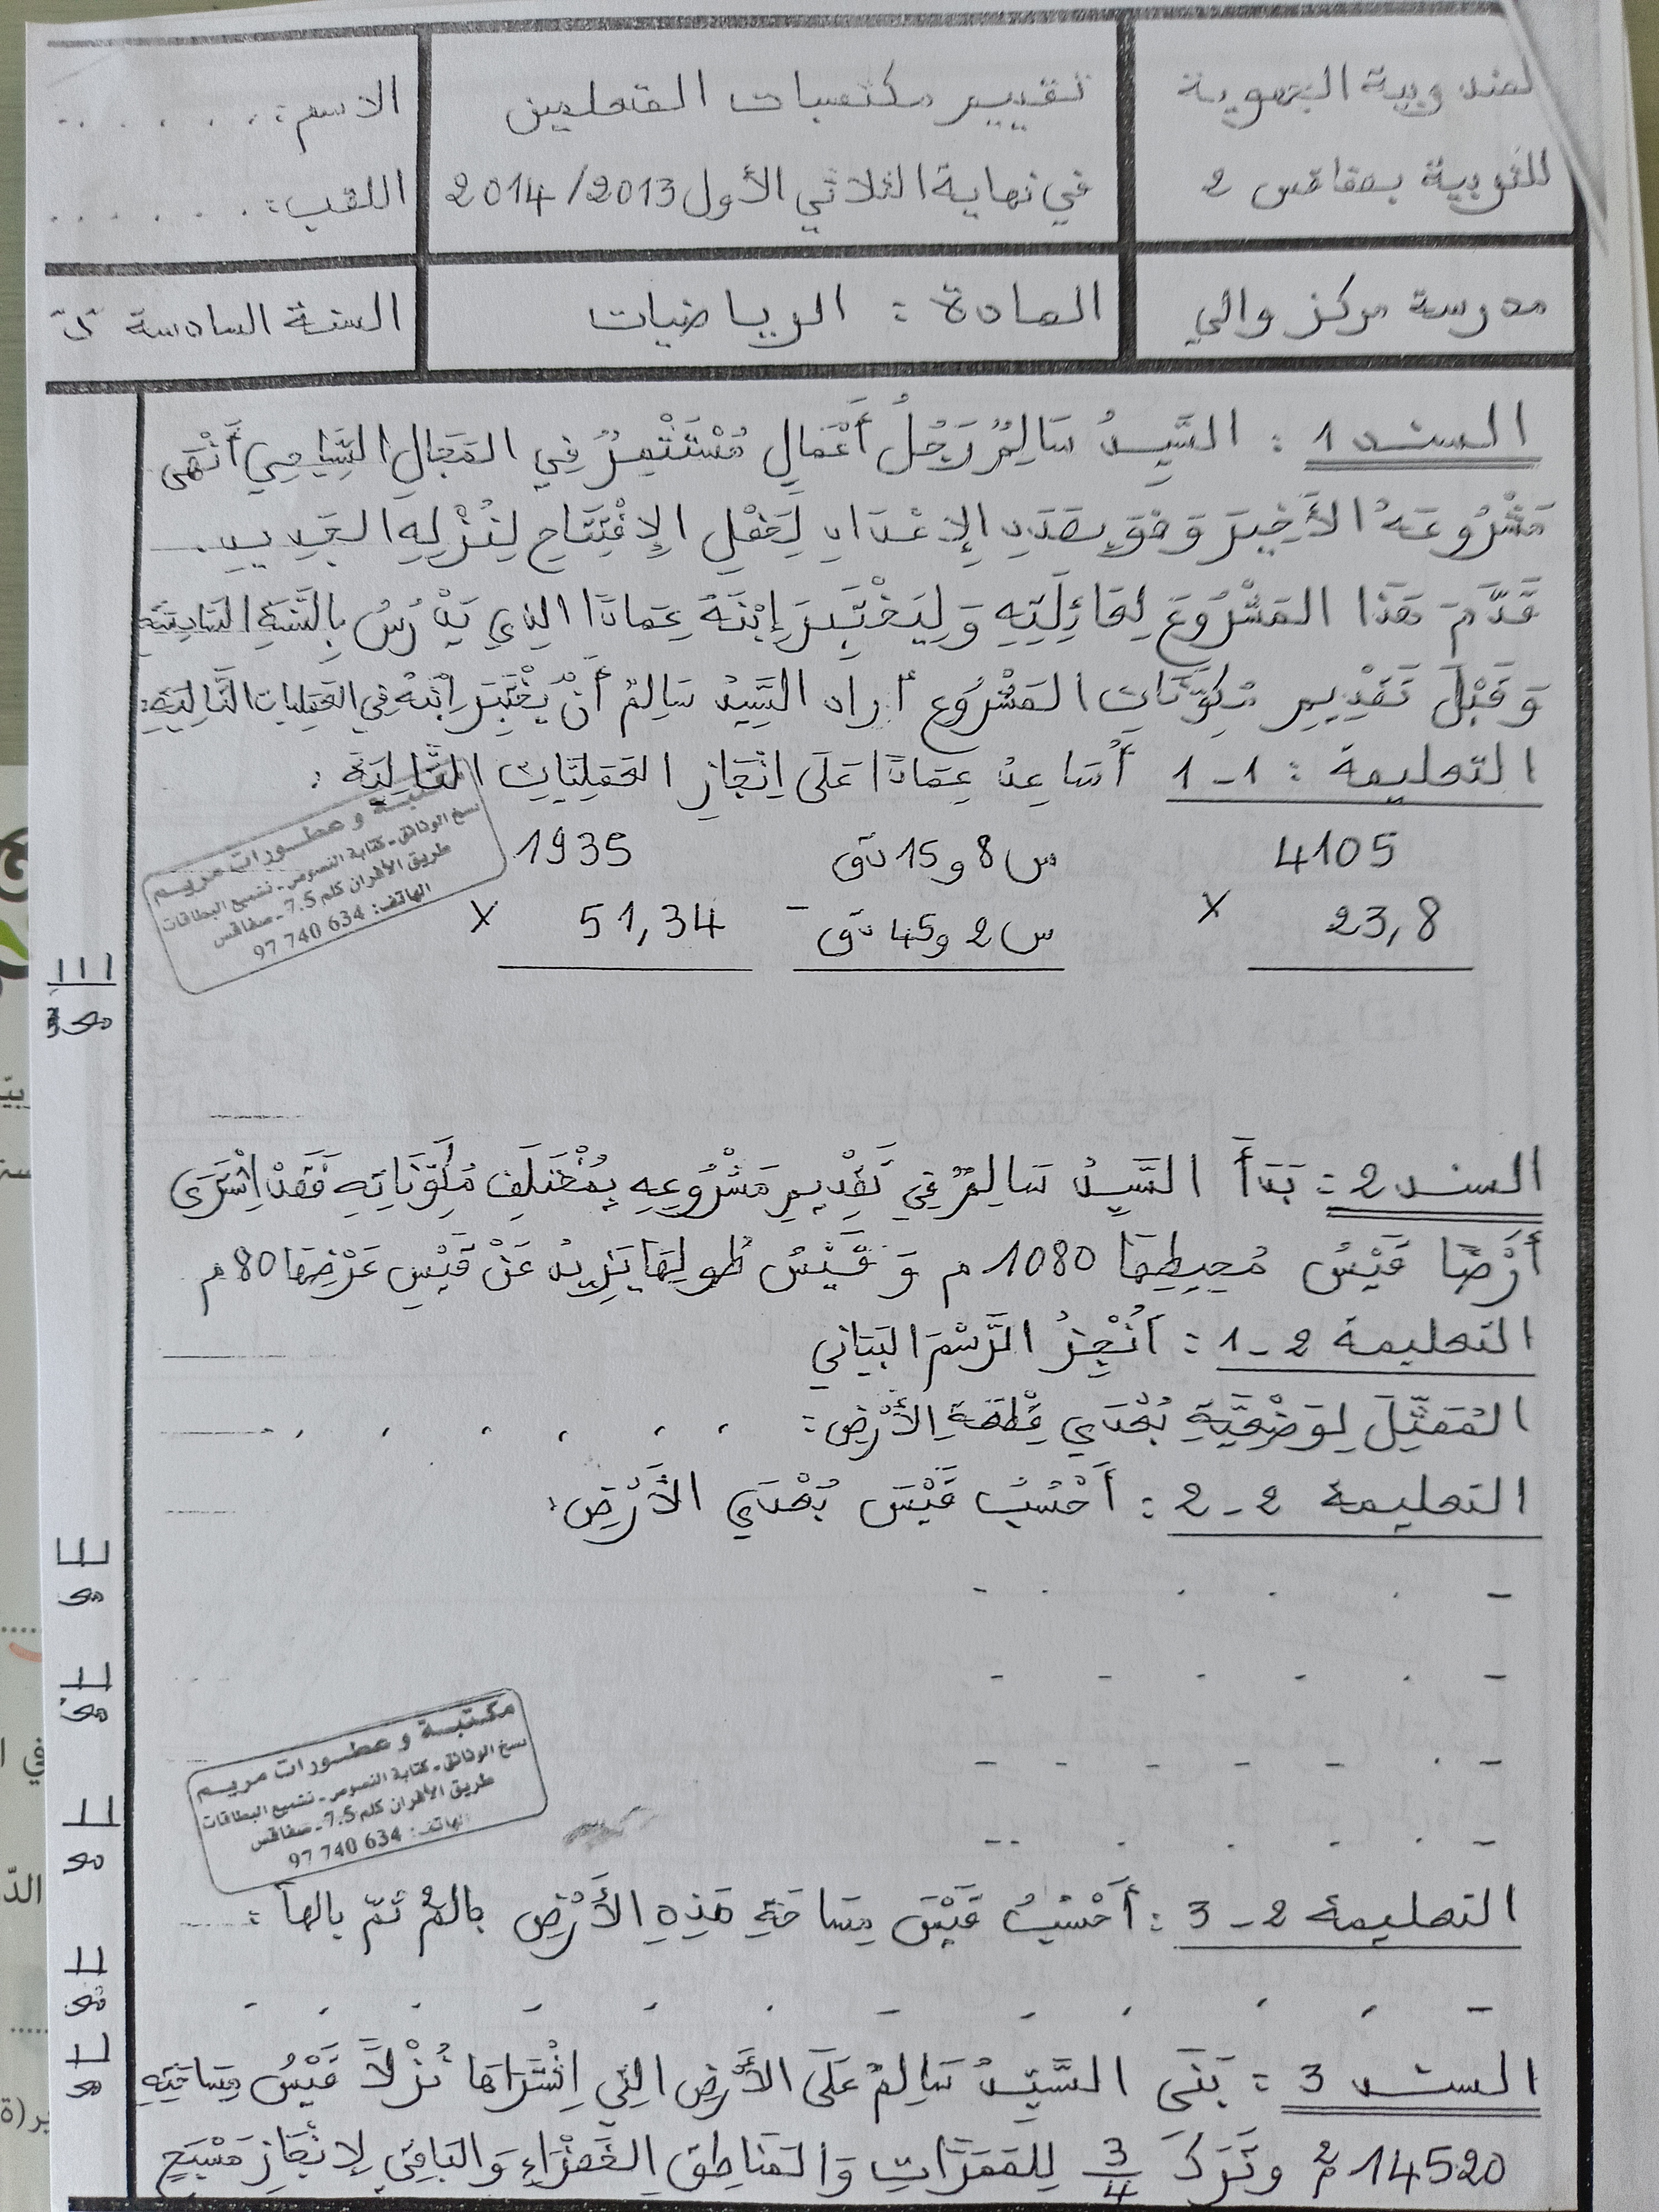 المندوبية الجهوية
للتربية بصفاقس 2
تقييم مكتسبات المتعلمين
في نهاية الثلاثي الأول 2013/2014
الاسم: . . . . . .
اللقب: . . . . . .
مدرسة مركز والي
المادة : الرياضيات
السنة السادسة
السند 1 : السَّيِّدُ سَالِمٌ رَجُلُ أَعْمَالٍ مُسْتَثْمِرٌ فِي المَجَالِ السِّيَاحِي أَنْهَى
مَشْرُوعَهُ الأَخِيرَ وَهُوَ بِصَدَدِ الإِعْدَادِ لِحَفْلِ الاِفْتِتَاحِ لِنُزْلِهِ الجَدِيدِ.
قَدَّمَ هَذَا المَشْرُوعَ لِعَائِلَتِهِ وَلِيَخْتَبِرَ إِبْنَهُ عِمَادًا الذي يَدْرُسُ بِالسَّنَةِ السَّادِسَةِ
وَقَبْلَ تَقْدِيمِ مُكَوِّنَاتِ المَشْرُوعِ أراد السَّيِّدُ سَالِمٌ أَنْ يَخْتَبِرَ اِبْنَهُ فِي العَمَلِيَّات التَّالِيَةِ:
التعليمة : 1-1 أُسَاعِدُ عِمَادًا عَلَى اِنْجَازِ العَمَلِيَّاتِ التَّالِيَةِ :
4105
× 23,8
س 8 و 15 دق
- س 2 و 45 دق
1935
× 51,34
و عطورات مريم
نسخ الوثائق - كتابة النصوص - تشميع البطاقات
طريق الأفران كلم 7.5 - صفاقس
الهاتف: 634 740 97
مع3
السند 2 : بَدَأَ السَّيِّدُ سَالِمٌ فِي تَقْدِيمِ مَشْرُوعِهِ بِمُخْتَلَفِ مُكَوِّنَاتِهِ فَقَدْ اِشْتَرَى
أَرْضًا قَيْسُ مُحِيطِهَا 1080 م وَ قَيْسُ طُولِهَا يَزِيدُ عَنْ قَيْسِ عَرْضِهَا 80 م
التعليمة 2-1 : أُنْجِزُ الرَّسْمَ البَيَانِي
المُمَثِّلَ لِوَضْعِيَّةِ بُعْدَي قِطْعَةِ الأَرْضِ: . . . . . .
التعليمة 2-2 : أَحْسُبُ قَيْسَ بُعْدَي الأَرْضِ:
مكتبة و عطورات مريم
نسخ الوثائق - كتابة النصوص - تشميع البطاقات
طريق الأفران كلم 7.5 - صفاقس
الهاتف: 634 740 97
التعليمة 2-3 : أَحْسُبُ قَيْسَ مِسَاحَةِ هَذِهِ الأَرْضِ بالم² ثمّ بالهآ :
السند 3 : بَنَى السَّيِّدُ سَالِمٌ عَلَى الأَرْضِ التِي اِشْتَرَاهَا نُزْلاً قَيْسُ مِسَاحَتِهِ
14520 م² وتَرَكَ 3/4 لِلمَمَرَّاتِ وَالمَنَاطِقِ الخَضْرَاءِ وَالبَاقِي لِإِنْجَازِ مَسْبَحٍ